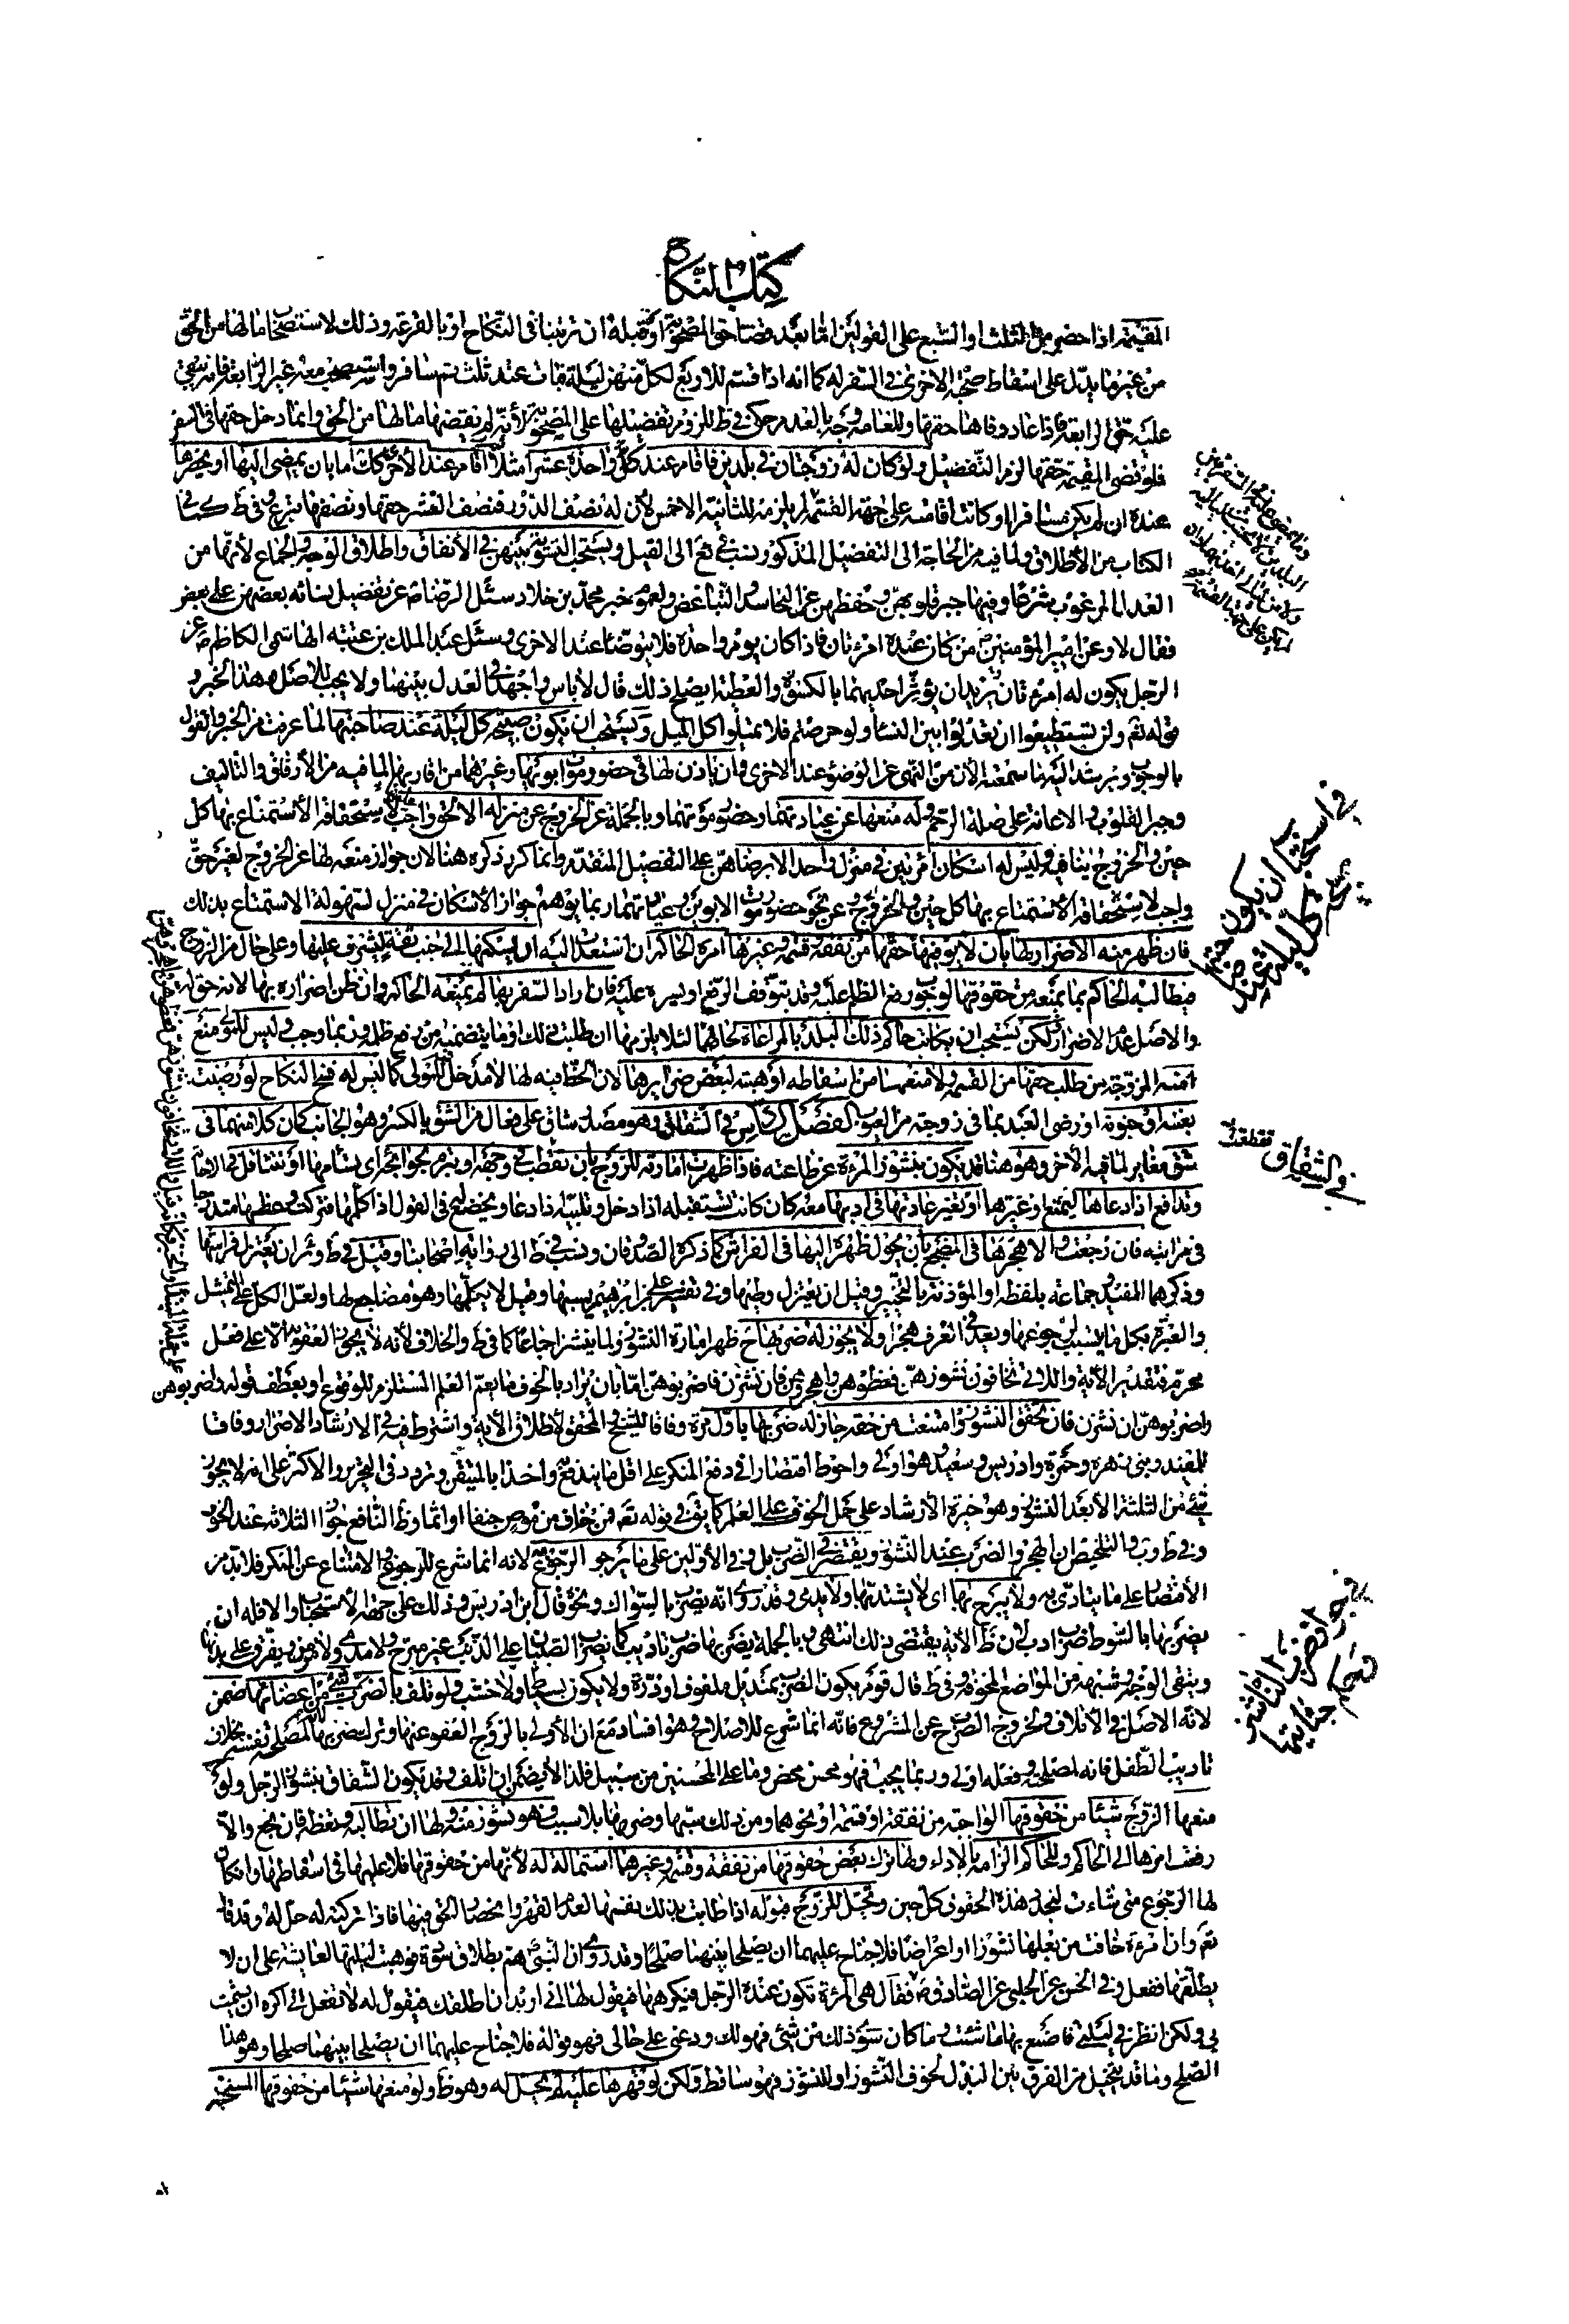 كتاب النكاح
المقيمة اذا حضر من الثلث او السبع على القولين اما بعد قضاء حق المصحوبة او قبله ان ترتبنا فى النكاح او بالقرعة وذلك لاستصحابها ما لها من الحق
من غير ما يدل على اسقاط صحبة الاخرى فى السفر له كما انه اذا قسم للاربع لكل منهن ليلة فبات عند ثلث ثم سافر واستصحب معه غير الرابعة فانه يبقى
عليه حق الرابعة فاذا عاد وفاها حقها وللعامة وجه بالعدم حكى فى ط للزوم تفضيلها على المصحوبة لأنه لم ينقصها ما لها من الحق وانما دخل حقها فى السفر
فلو قضى المقيمة حقها لزم التفضيل ولو كان له زوجتان فى بلدين فاقام عند كل واحدة عشرا مثلا اقام عند الأخرى كك اما بان يمضى اليها او يحضرها
عنده ان لم يكن مسافرا او كانت اقامته على جهة القسمة لم يلزمه للثانية الا خمس لأن له نصف الدور فنصف العشر حقها ونصفها تبرع وفى ط كما فى
الكتاب من الأطلاق لما فيه من الحاجة الى التفضيل المذكور ونسب فى يع الى القيل ويستحب التسوية بينهن فى الأنفاق واطلاق الوجه والجماع لأنها من
العدل المرغوب شرعا وفيها جبر قلوبهن وحفظهن عن التحاسد والتباغض ولعموم خبر محمد بن خلاد سئل الرضا ع عن تفضيل نسائه بعضهن على بعض
فقال لا وعن امير المؤمنين ع من كان عنده امرءتان فاذا كان يوم واحدة فلا يتوضا عند الاخرى وسئل عبد الملك بن عتبة الهاشمى الكاظم ع عن
الرجل يكون له امرءتان يريد ان يؤثر احديهما بالكسوة والعطية ايصلح ذلك قال لا باس واجهد فى العدل بينهما ولا يجب للأصل وهذا الخبر و
قوله تع ولن تستطيعوا ان تعدلوا بين النساء ولو حرصتم فلا تميلوا كل الميل ويستحب ان يكون صبيحة كل ليلة عند صاحبتها لما عرفت من الخبر والقول
بالوجوب ويرشد اليه ما سمعته الآن من النهى عن الوضوء عند الاخرى وان ياذن لها فى حضور موت ابويها وغيرهما من اقاربها لما فيه من الأرفاق والتاليف
وجبر القلوب والاعانة على صلة الرحم وله منعها عن عيادتهما وحضور موتهما وبالجملة عن الخروج عن منزله الا لحق واجب لاستحقاقه الاستمتاع بها كل
حين والخروج ينافيه وليس له اسكان امرئتين فى منزل واحد الا برضاهن على التفصيل المتقدم وانما كرر ذكره هنا لان جواز منعه لها عن الخروج لغير حق
واجب لاستحقاقه الأستمتاع بها كل حين والخروج عن نحو حضور موت الابوين وعيادتهما ربما يوهم جواز الأسكان فى منزل لسهولة الاستمتاع بذلك
فان ظهر منه الأضرار لها بان لا يوفيها حقها من نفقة وقسمة وغيرها امره الحاكم ان استعدت اليه ان يسكنها الى جنب ثقة ليشرف عليها وعلى حال من الزوج
فيطالبه الحاكم بما يمنعه من حقوقها لوجوب رفع الظلم عليه وقد يتوقف الرفع او يسره عليه فان اراد السفر بها لم يمنعه الحاكم وان ظن اضراره بها لانه حق له
والاصل عدم الاضرار لكن يستحب ان يكاتب حاكم ذلك البلد بالمراعاة لحالهما لئلا يلزمها ان طلبت ذلك او ما يتضمنه من رفع ظلم وربما وجب وليس للمولى منع
امته المزوجة من طلب حقها من القسمة ولا منعها من اسقاطه او هبته لبعض ضرايرها لان الحظ فيه لها لا مدخل للمولى كما ليس له فسخ النكاح لو رضيت
بعنته او جنونه او رضى العبد بما فى زوجته من العيوب الفصل السادس فى الشقاق وهو مصدر شاق على فعال من الشق بالكسر وهو الجانب كان كلا منهما فى
شق مغاير لما فيه الأخر وهو هنا قد يكون بنشوز المرءة عن طاعته فاذا ظهرت امارته للزوج بان تقطب فى وجهه او تبرم بحوائجه اى يسامها او تتثاقل
وتدافع اذا دعاها ليمتنع او غيرها او تغير عادتها فى ادبها معه كان كانت تستقبله اذا دخل وتلبيه اذا دعا وتخضع فى القول اذا كلمها فتركت وعظها
فى مراتبه فان رجعت والا هجرها فى المضجع بان يحول ظهره اليها فى الفراش كما ذكره الصدوقان ونسب فى ط الى رواية اصحابنا وقيل فى ط وئر ان يعتزل فراشها
وذكرهما المفيد وجماعة بلفظة او المؤذنة بالتخيير وقيل ان يعتزل وطئها وفى تفسير على بن ابرهيم يسبها وقيل لا يكلمها وهو مضاجع لها ولعل الكل على التمثيل
والعبرة بكل ما يتسبب لرجوعها ويعد فى العرف هجرا ولا يجوز له ضربها ح ظهر امارة النشوز ولما ينشز اجماعا كما فى ط والخلاف لأنه لا يجوز العقوبة الا على فعل
محرم فتقدير الأية واللاتى تخافون نشوزهن فعظوهن واهجروهن فان نشزن فاضربوهن اما بان يراد بالخوف ما يعم العلم المستلزم للوقوع او يعطف قوله واضربوهن
واضربوهن ان نشزن فان تحقق النشوز وامتنعت من حقه جاز له ضربها باول مرة وفاقا للشيخ والمحقق لأطلاق الأية واشترط فيه الارشاد الاصرار وفاقا
للمفيد وبنى زهرة وحمزة وادريس وسعيد وهو اولى واحوط اقتصارا فى دفع المنكر على اقل ما يندفع به واخذا بالمتيقن وتردد فى التحرير والاكثر على انه لا يجوز
شئ من الثلثة الا بعد النشوز وهو خيرة الأرشاد على حمل الخوف على العلم كما يق فى قوله تع فمن خاف من موص جنفا او اثما وظ النافع جواز الثلاثة عند الخوف
وفى ط وئر والتلخيص ان الهجر والضرب عند النشوز ويقتصر فى الضرب بل وفى الأولين على ما يرجو الرجوع به لانه انما شرع للرجوع والامتناع عن المنكر فلا بد من
الأقتصار على ما يتادى به ولا يبرح بها اى لا يشتد بها ولا يدمى وقد روى انه يضرب بالسواك ونحوه قال ابن ادريس وذلك على جهة الأستحباب والا فله ان
يضربها بالسوط ضرب ادب لأن ظ الأية يقتضى ذلك انتهى وبالجملة يضربها ضرب تاديب كما يضرب الصبيان على الذنب غير مبرح ولا مدمى ولا مزمن ويفرق على بدنها
ويتقى الوجه وشبهه من المواضع المخوفة وفى ط قال قوم يكون الضرب بمنديل ملفوف او درة ولا يكون بسياط ولا خشب ولو تلف بالضرب شئ من اعضائها ضمن
لانه الاصل فى الاتلاف ولخروج الضرب ح عن المشروع فانه انما شرع للاصلاح وهو افساد مع ان الأولى بالزوج العفو عنها وترك ضربها لمصلحة نفسه بخلاف
تاديب الطفل فانه لمصلحته وفعله اولى وربما يجب فهو محسن محض وما على المحسنين من سبيل فلذا لا يضمن ان اتلف وقد يكون الشقاق بنشوز الرجل ولو
منعها الزوج شيئا من حقوقها الواجبة من نفقة او قسمة او نحوهما ومن ذلك سبها وضربها بلا سبب فهو نشوز منه ولها ان تطالبه وتعظه فان نجع والا
رفعت امرها الى الحاكم وللحاكم الزامه بالاداء ولها ترك بعض حقوقها من نفقة وقسمة وغيرهما استمالة له لأنها من حقوقها فلا عليها فى اسقاطها وان كان
لها الرجوع متى شاءت لتجدد هذه الحقوق كل حين ويحل للزوج قبوله اذا طابت بذلك نفسها لعدم القهر وانحصار الحق فيها فاذا تركته له حل له وقد قال
تع وان امرءة خافت من بعلها نشوزا او اعراضا فلا جناح عليهما ان يصلحا بينهما صلحا وقد روى ان النبى ص هم بطلاق سودة فوهبت ليلتها لعايشة على ان لا
يطلقها ففعل وفى الحسن عن الحلبى عن الصادق ع فقال هى المرءة تكون عند الرجل فيكرهها فيقول لها انى اريد ان اطلقك فيقول له لا تفعل انى اكره ان يشمت
بى ولكن انظر فى ليلتى فاصنع بها ما شئت وما كان سوى ذلك من شئ فهو لك ودعنى على حالى فهو قوله فلا جناح عليهما ان يصلحا بينهما صلحا وهو هذا
الصلح وما قد يتخيل من الفرق بين البذل لخوف النشوز او للنشوز فهو ساقط ولكن لو قهرها عليه لم يحل له وهو ظ ولو منعها شيئا من حقوقها المستحبة
فى استحباب ان يكون صبيحة كل ليلة عند صاحبتها
فى الشقاق
فى جواز ضرب المرأة الناشز